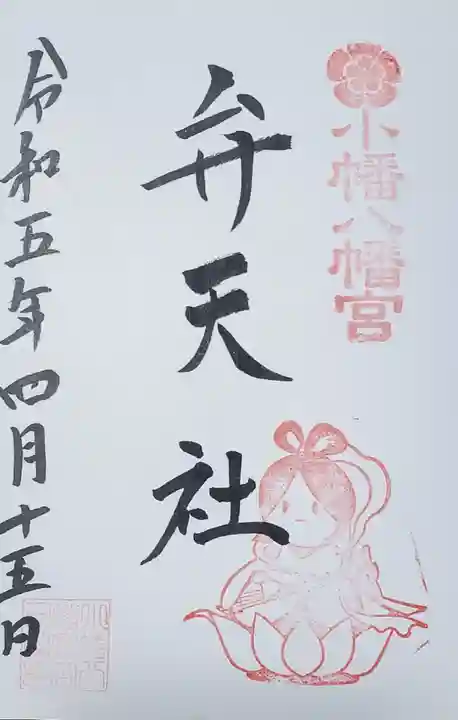 小幡八幡宮
弁天社
令和五年四月十五日